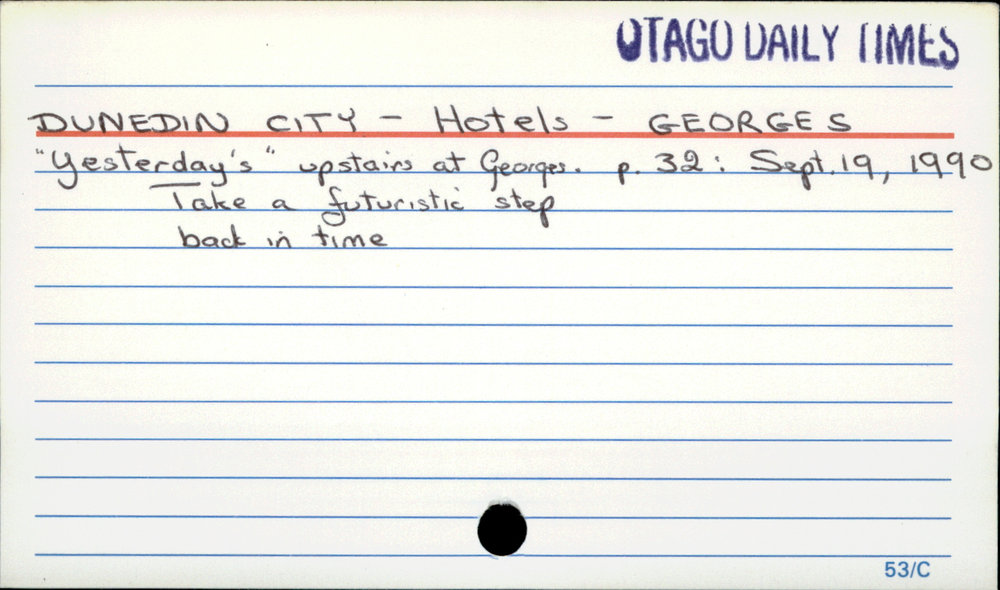 OTAGO DAILY TIMES
DUNEDIN CITY - Hotels - GEORGES
"Yesterday's" upstairs at Georges. p. 32: Sept. 19, 1990
Take a futuristic step
back in time
53/C